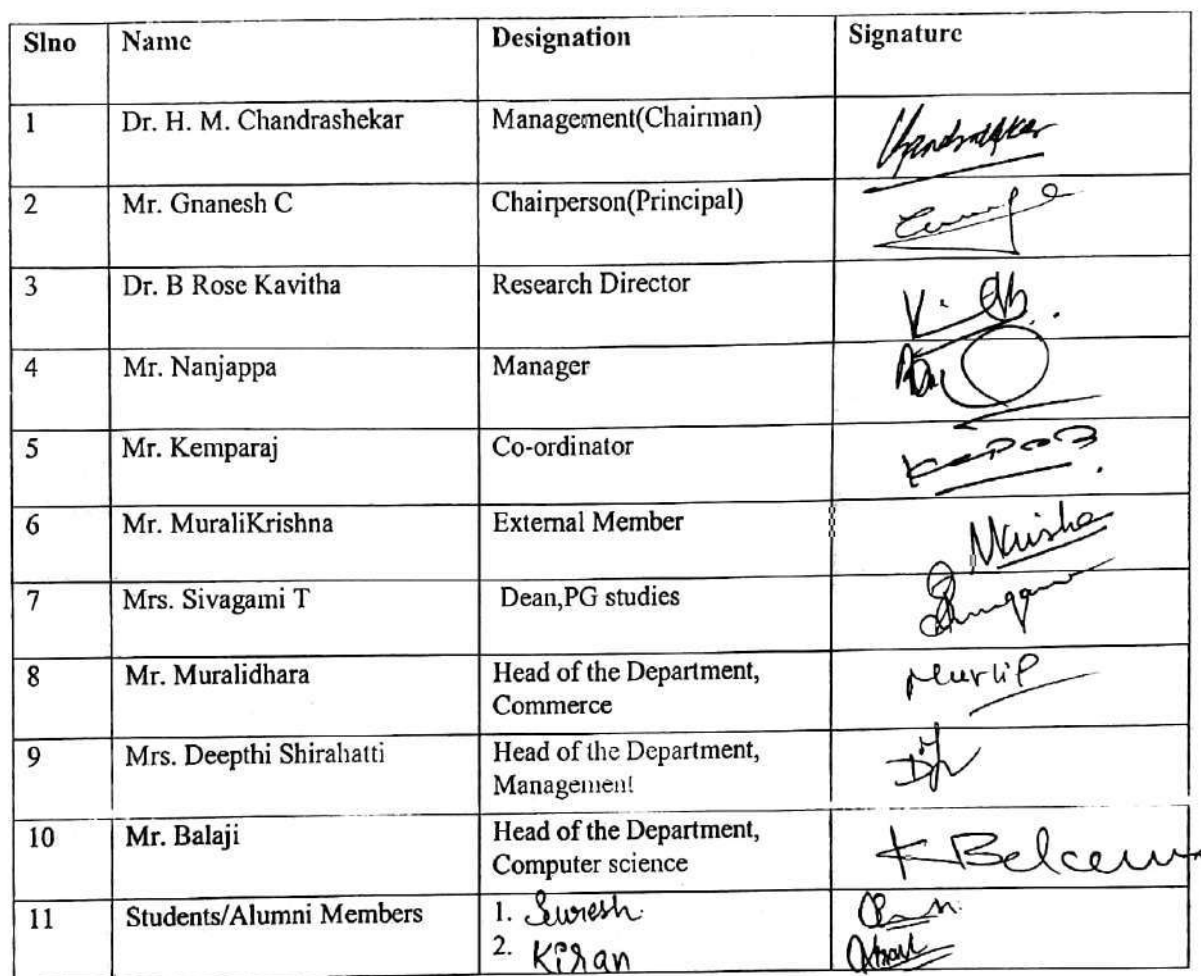 Slno Name Designation Signature
1 Dr. H. M. Chandrashekar Management(Chairman)
2 Mr. Gnanesh C Chairperson(Principal)
3 Dr. B Rose Kavitha Research Director
4 Mr. Nanjappa Manager
5 Mr. Kemparaj Co-ordinator
6 Mr. MuraliKrishna External Member
7 Mrs. Sivagami T Dean,PG studies
8 Mr. Muralidhara Head of the Department,
Commerce
9 Mrs. Deepthi Shirahatti Head of the Department,
Management
10 Mr. Balaji Head of the Department,
Computer science
11 Students/Alumni Members 1. Suresh
2. Kiran